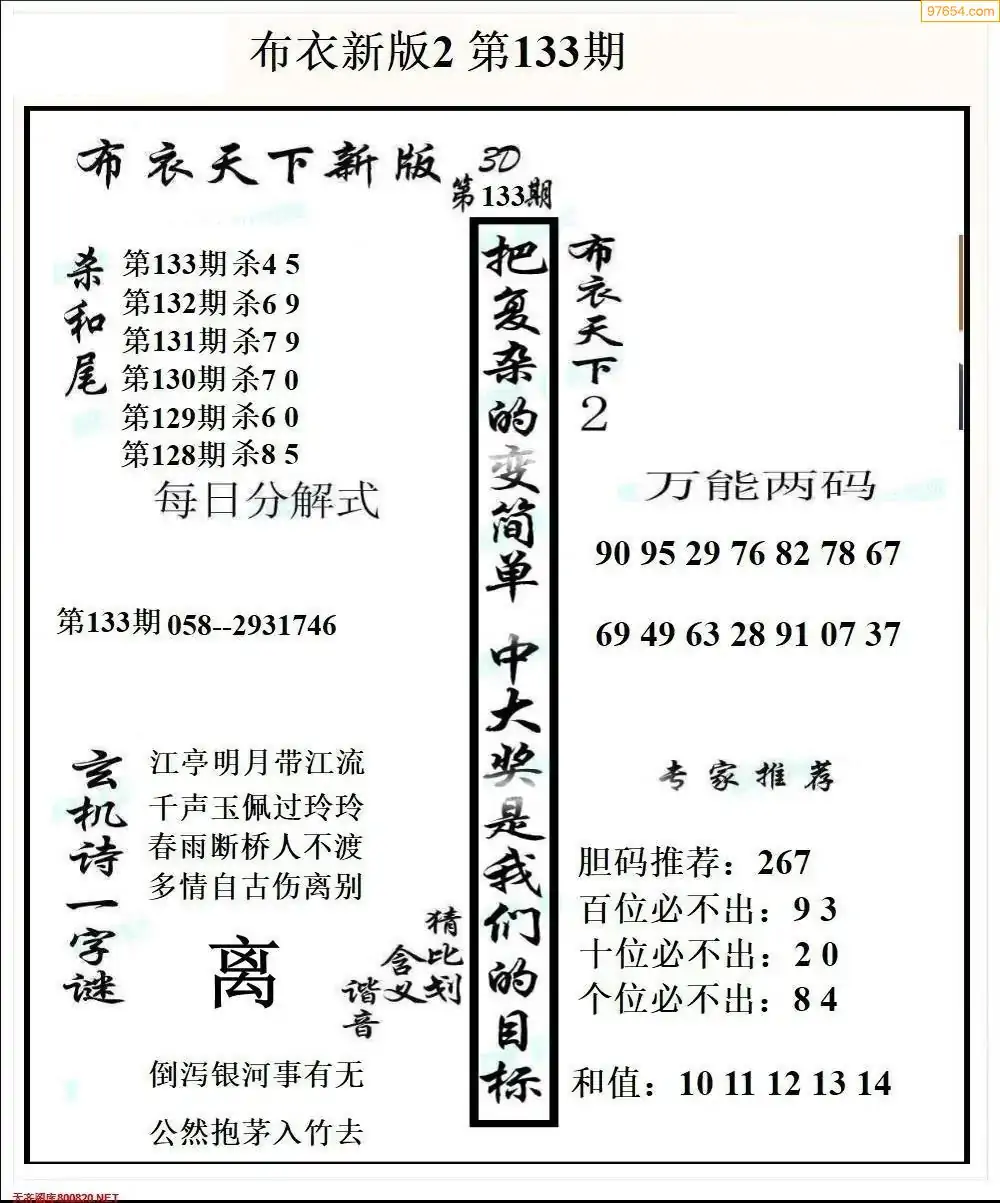 97654.com
布衣新版2 第133期
布衣天下新版 3D
第133期
杀和尾
第133期杀4 5
第132期杀6 9
第131期杀7 9
第130期杀7 0
第129期杀6 0
第128期杀8 5
每日分解式
第133期 058--2931746
玄机诗一字谜
江亭明月带江流
千声玉佩过玲玲
春雨断桥人不渡
多情自古伤离别
离
猜比划
含义
谐音
倒泻银河事有无
公然抱茅入竹去
把复杂的变简单 中大奖是我们的目标
布衣天下2
万能两码
90 95 29 76 82 78 67
69 49 63 28 91 07 37
专家推荐
胆码推荐：267
百位必不出：9 3
十位必不出：2 0
个位必不出：8 4
和值：10 11 12 13 14
天齐图库800820.NET